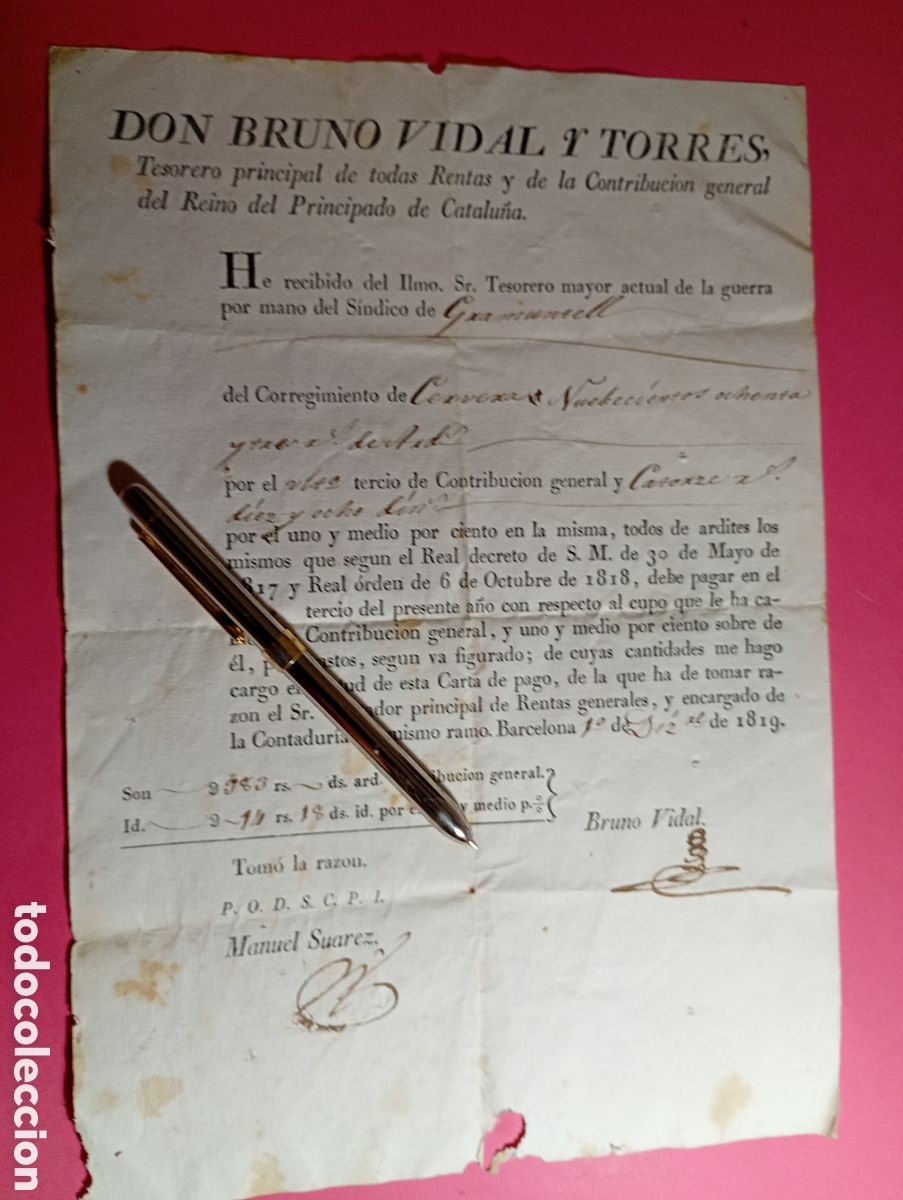 DON BRUNO VIDAL Y TORRES,
Tesorero principal de todas Rentas y de la Contribucion general
del Reino del Principado de Cataluña.
He recibido del Ilmo. Sr. Tesorero mayor actual de la guerra
por mano del Síndico de Gramuntell
del Corregimiento de Cervera Nuebecientos ochenta
y tres rs. de Ard.s
por el tercio de Contribucion general y Catorze rs.
diez y ocho din.s
por el uno y medio por ciento en la misma, todos de ardites los
mismos que segun el Real decreto de S. M. de 30 de Mayo de
1817 y Real órden de 6 de Octubre de 1818, debe pagar en el
tercio del presente año con respecto al cupo que le ha ca-
Contribucion general, y uno y medio por ciento sobre de
él, p astos, segun va figurado; de cuyas cantidades me hago
cargo e ud de esta Carta de pago, de la que ha de tomar ra-
zon el Sr. ador principal de Rentas generales, y encargado de
la Contaduría mismo ramo. Barcelona 1º de Dizre de 1819.
Son 983 rs. ds. ard. ibucion general.
Id. 14 rs. 18 ds. id. por y medio p.%
Bruno Vidal.
Tomó la razon.
P. O. D. S. C. P. I.
Manuel Suarez.
todocoleccion